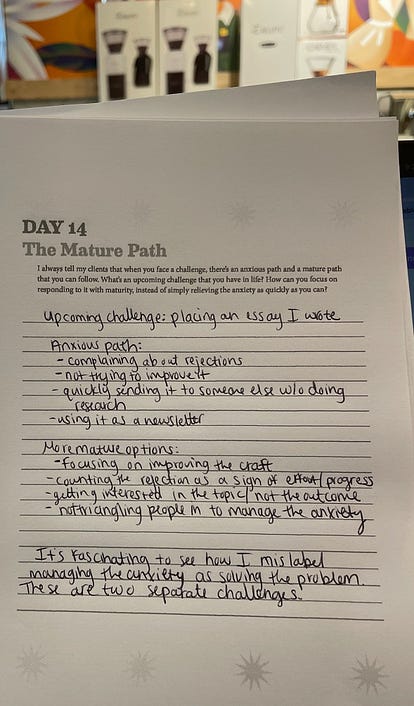 DAY 14
The Mature Path
I always tell my clients that when you face a challenge, there's an anxious path and a mature path
that you can follow. What's an upcoming challenge that you have in life? How can you focus on
responding to it with maturity, instead of simply relieving the anxiety as quickly as you can?
Upcoming challenge: placing an essay I wrote
Anxious path:
- complaining about rejections
- not trying to improve it
- quickly sending it to someone else w/o doing
research
- using it as a newsletter
More mature options:
- focusing on improving the craft
- counting the rejection as a sign of effort/progress
- getting interested in the topic/not the outcome
- not triangling people in to manage the anxiety
It's fascinating to see how I mislabel
managing the anxiety as solving the problem.
These are two separate challenges!